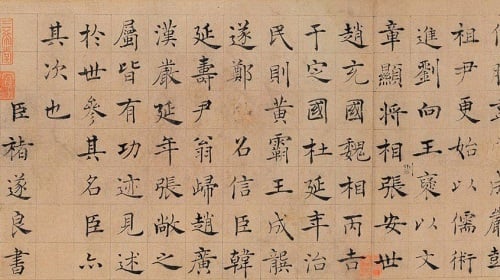 成嚴彭
祖尹更始以儒術
進劉向王褒以文
章顯將相張安世
趙充國魏相丙吉
于定國杜延年治
民則黃霸王成龔
遂鄭 召信臣韓
延壽尹翁歸趙廣
漢嚴延年張敞之
屬皆有功迹見述
於世參其名臣亦
其次也
臣褚遂良書